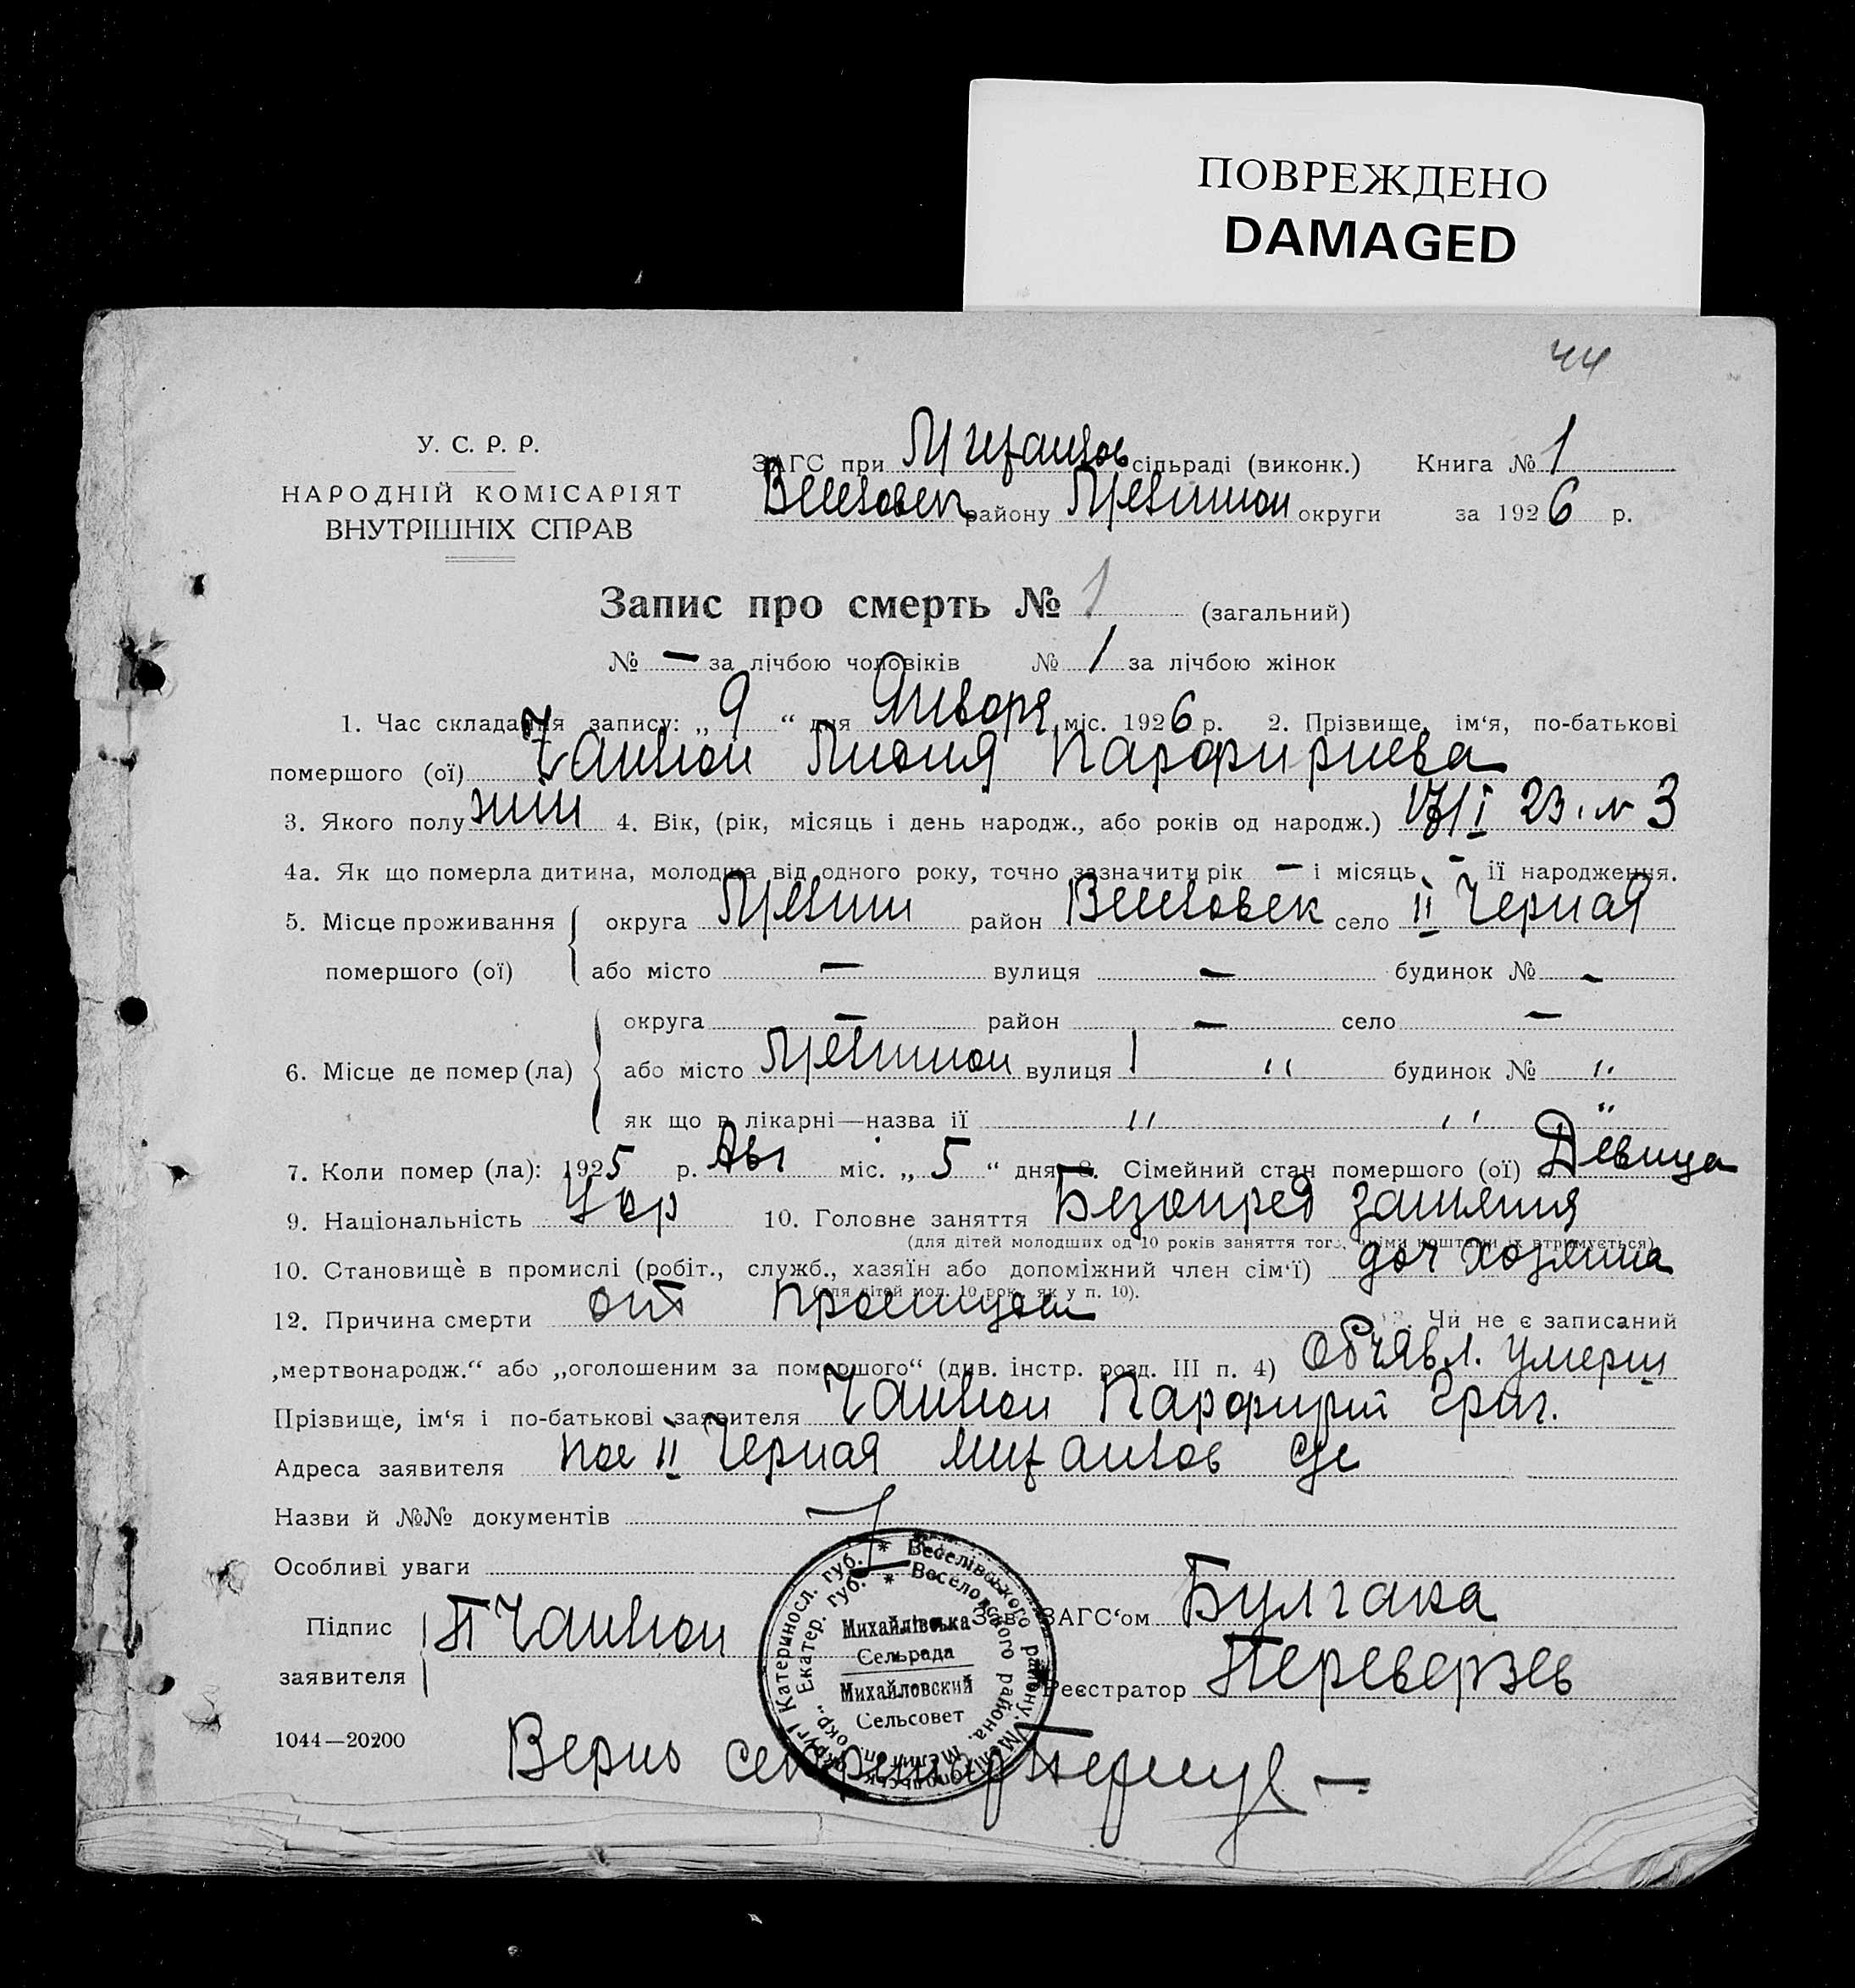 ПОВРЕЖДЕНО
DAMAGED
44
У. С. Р. Р.
НАРОДНІЙ КОМІСАРІЯТ
ВНУТРІШНІХ СПРАВ
ЗАГС при Михайлов сільраді (виконк.) Книга № 1
Веселовск району округи за 1926 р.
Запис про смерть № 1 (загальний)
№ — за лічбою чоловіків № 1 за лічбою жінок
1. Час складання запису: „ 9 “ дня Января міс. 1926 р. 2. Прізвище, ім‘я, по-батькові
помершого (ої) Парфириева
3. Якого полу жін 4. Вік, (рік, місяць і день народж., або років од народж.) 23 3
4а. Як що померла дитина, молодша від одного року, точно зазначити рік — і місяць - її народження.
5. Місце проживання округа район Веселовск село II Черная
помершого (ої) або місто — вулиця — будинок № -
округа — район — село —
6. Місце де помер (ла) або місто вулиця " будинок № "
як що в лікарні—назва її " " "
7. Коли помер (ла): 1925 р. Авг міс. „ 5 “ дня 8. Сімейний стан помершого (ої) Девица
9. Національність Укр 10. Головне заняття Безопред занятия
(для дітей молодших од 10 років заняття того, чиїми коштами їх втримується)
10. Становищѐ в промислі (робіт., служб., хазяїн або допоміжний член сім‘ї) доч хозяина
(для дітей мол. 10 рок., як у п. 10).
12. Причина смерти от 13. Чи не є записаний
„мертвонародж.“ або „оголошеним за помершого“ (див. інстр. розд. III п. 4) Объявл. умерш
Прізвище, ім‘я і по-батькові заявителя Парфирий Григ.
Адреса заявителя пос II Черная Михайлов с/с
Назви й №№ документів
Особливі уваги
Підпис
заявителя
Зав. ЗАГС‘ом Булгака
Реєстратор Переверзев
* Веселівського району, Мелітопольськ. округи Катеринносл. губ.
* Веселовского района, Мелитоп. окр., Екатер. губ.
Михайлівська
Сельрада
Михайловский
Сельсовет
1044—20200
Верно секретарь